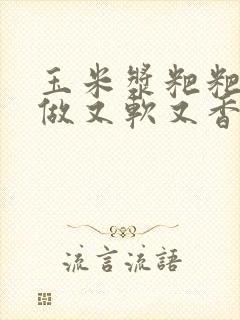 玉米漿粑粑
做又軟又香
流言流語